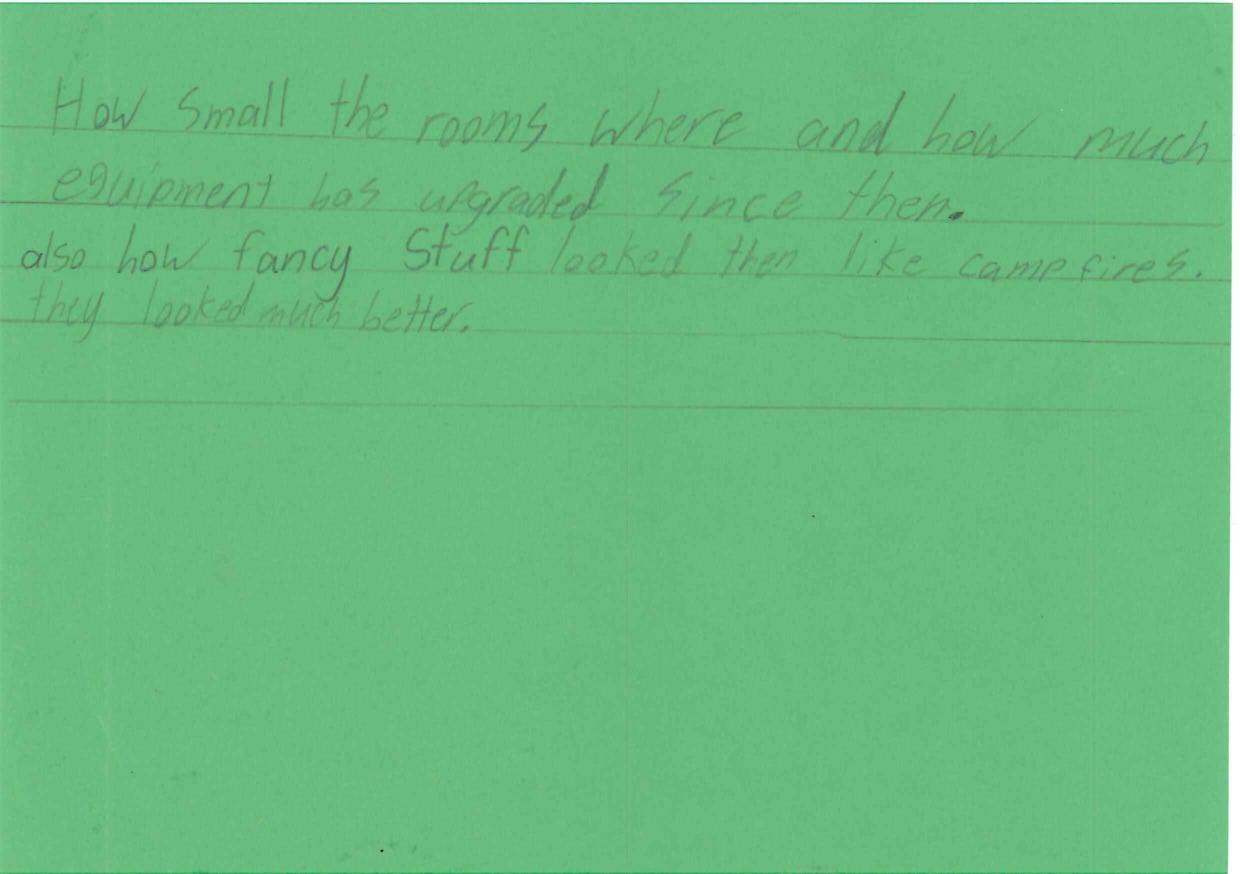 How Small the rooms where and how much
equipment has upgraded since then.
also how fancy Stuff looked then like campfires.
they looked much better.